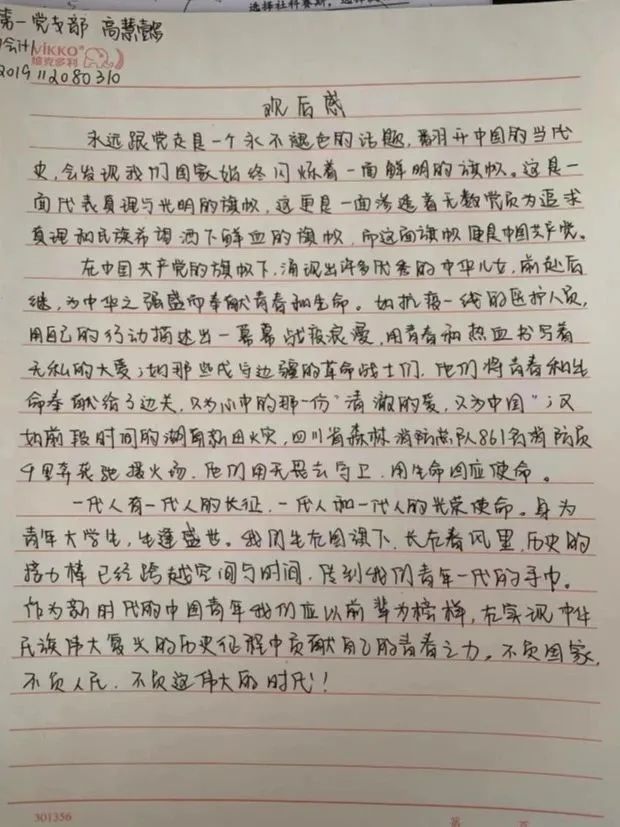 选择社科赛斯，选择
第一党支部 高慧
会计
VIKKO®
维克多利
2019112080310
观后感
永远跟党走是一个永不褪色的话题，翻开中国的当代
史，会发现我们国家始终闪烁着一面鲜明的旗帜。这是一
面代表真理与光明的旗帜，这更是一面渗透着无数党员为追求
真理和民族希望洒下鲜血的旗帜，而这面旗帜便是中国共产党。
在中国共产党的旗帜下，涌现出许多优秀的中华儿女，前赴后
继，为中华之强盛而奉献青春和生命。如抗疫一线的医护人员，
用自己的行动描述出一幕幕战疫浪漫，用青春和热血书写着
无私的大爱；如那些戍守边疆的革命战士们，他们将青春和生
命奉献给了边关，只为心中的那一份“清澈的爱，只为中国”；又
如前段时间的湖南新田火灾，四川省森林消防总队861名消防员
千里奔驰援火场，他们用无畏去守卫，用生命回应使命。
一代人有一代人的长征，一代人和一代人的光荣使命。身为
青年大学生，生逢盛世。我们生在国旗下，长在春风里，历史的
接力棒已经跨越空间与时间，传到我们青年一代的手中。
作为新时代的中国青年我们应以前辈为榜样，在实现中华
民族伟大复兴的历史征程中贡献自己的青春之力。不负国家，
不负人民，不负这伟大的时代！
301356
第 页